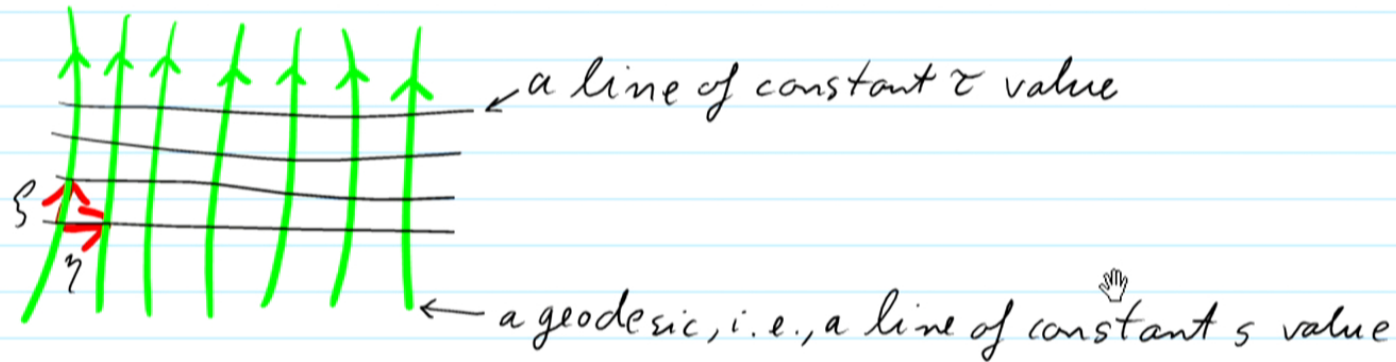 a line of constant τ value
ξ
η
a geodesic, i.e., a line of constant s value